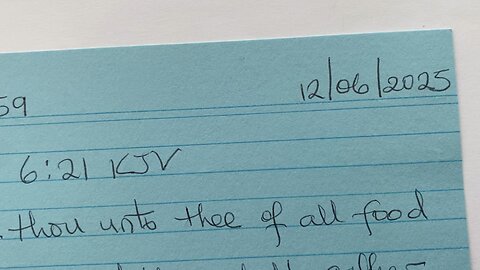 59 12/06/2025
6:21 KJV
thou unto thee of all food